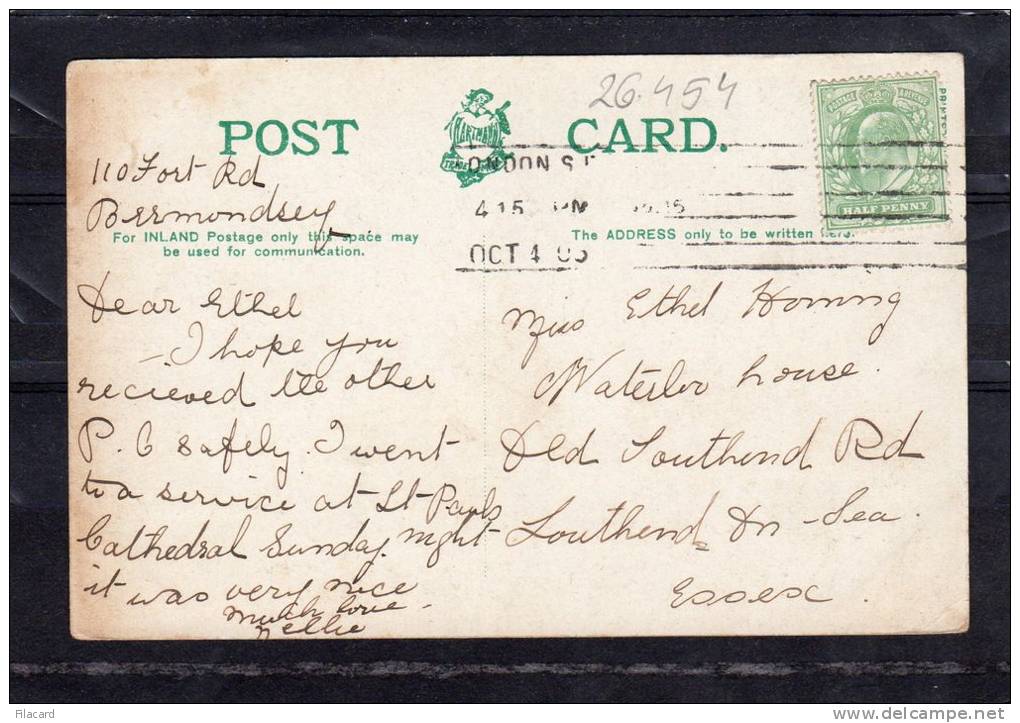 26.454
POST CARD.
HARTMANN
POSTAGE & REVENUE
HALF PENNY
ONDON S.E
4.15 PM
OCT 4 05
110 Fort Rd
Bermondsey
For INLAND Postage only this space may
be used for communication.
The ADDRESS only to be written here.
Dear Ethel
— I hope you
recieved the other
P. C safely. I went
to a service at St Pauls
Cathedral Sunday night
it was very nice
much love -
Nellie
Miss Ethel
Waterloo house.
Old Southend Rd
Southend On - Sea.
Essex.
Filacard
www.delcampe.net